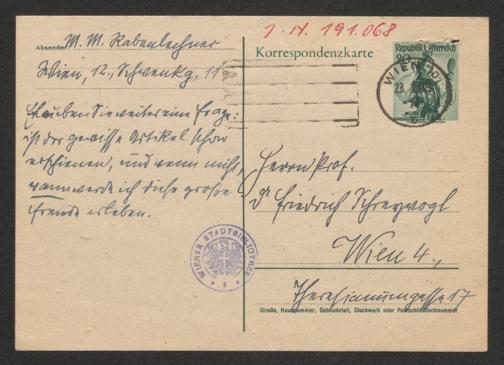 J. N. 191.068
Absender: M. M. Rabenlechner
Wien, 12., Schwenkg. 11
Erlauben Sie weiter eine Frage:
ist der gewisse Artikel schon
erschienen, und wenn nicht,
wann werde ich diese große
Freude erleben.
Korrespondenzkarte
Republik Österreich
WIEN
28.
Herrn Prof.
Dr Friedrich Schreyvogl
Wien 4.,
Theresianumgasse 17
Straße, Hausnummer, Gebäudeteil, Stockwerk oder Postschließfachnummer
WIENER STADTBIBLIOTHEK